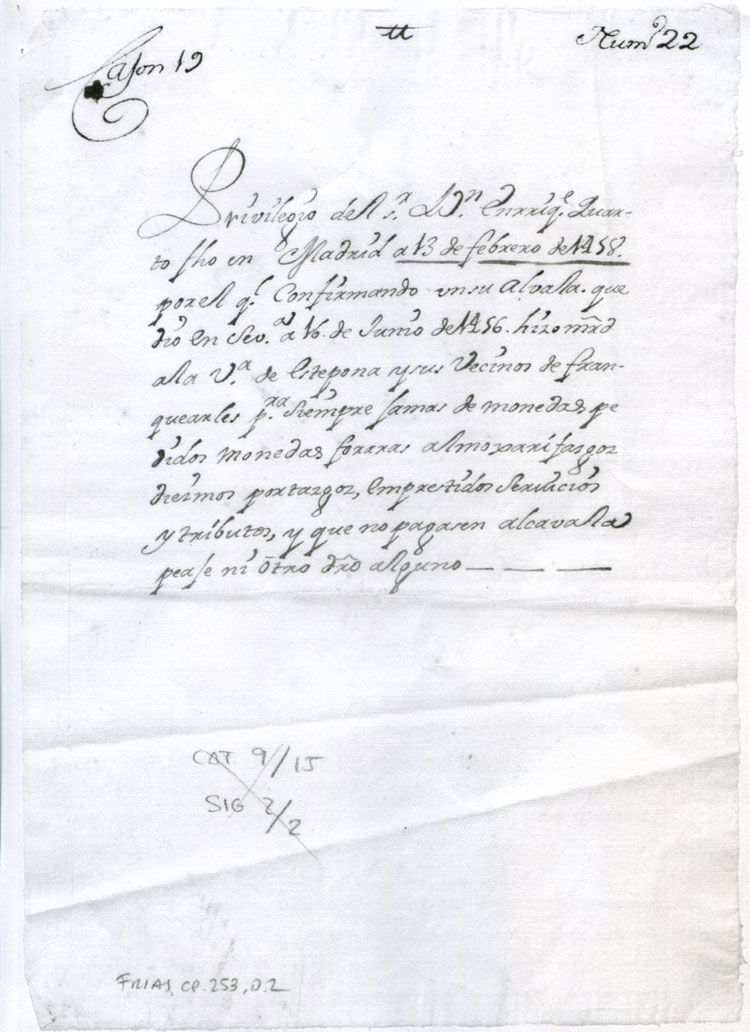 Cajon 19
tt
Num.º 22
Privilegio del s.r D.n Enrriq.e Quar-
to fho en Madrid a 13 de febrero de 1458.
por el q.l Confirmando un su Alvala. que
dio en Sev.a a 16 de Junio de 1456. hizo mrd
a la V.a de Estepona y sus Vecinos de fran-
quearles p.ra siempre jamas de monedas pe
didos monedas foraras almoxarifazgos
diezmos portazgos, Emprestidos Servicios
y tributos, y que no pagasen alcavala
peaje ni otro dro alguno — — —
CAT 9/15
SIG 2/2
FRIAS, CP. 253, D.2